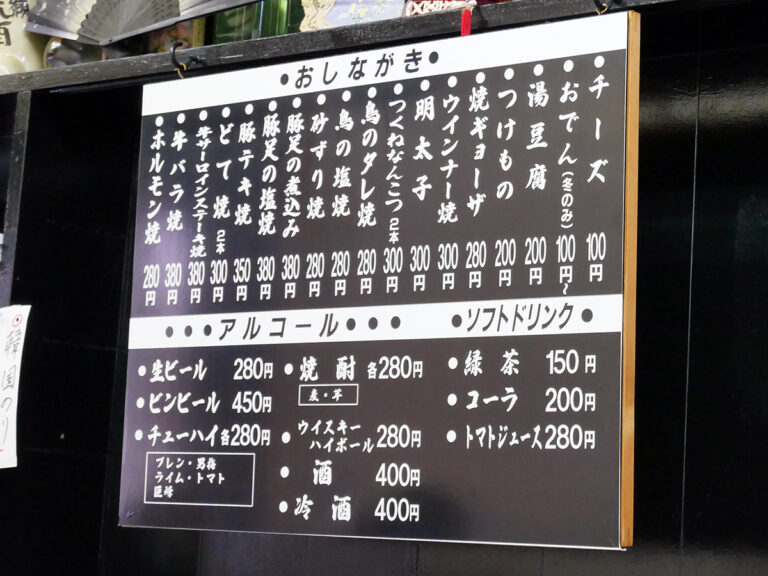 ●おしながき●
●チーズ 100円
●おでん(冬のみ) 100円~
●湯豆腐 200円
●つけもの 200円
●焼ギョーザ 280円
●ウインナー焼 300円
●明太子 300円
●つくねなんこつ2本 300円
●鳥のタレ焼 280円
●鳥の塩焼 280円
●砂ずり焼 280円
●豚足の煮込み 380円
●豚足の塩焼 380円
●豚テキ焼 350円
●どて焼2本 300円
●牛サーロインステーキ焼 380円
●牛バラ焼 380円
●ホルモン焼 280円
●●●アルコール●●●
●生ビール 280円
●ビンビール 450円
●チューハイ各280円
プレン・男梅
ライム・トマト
巨峰
●焼酎 各280円
麦・芋
●ウイスキー
ハイボール280円
●酒 400円
●冷酒 400円
●ソフトドリンク●
●緑茶 150円
●コーラ 200円
●トマトジュース280円
韓国のり